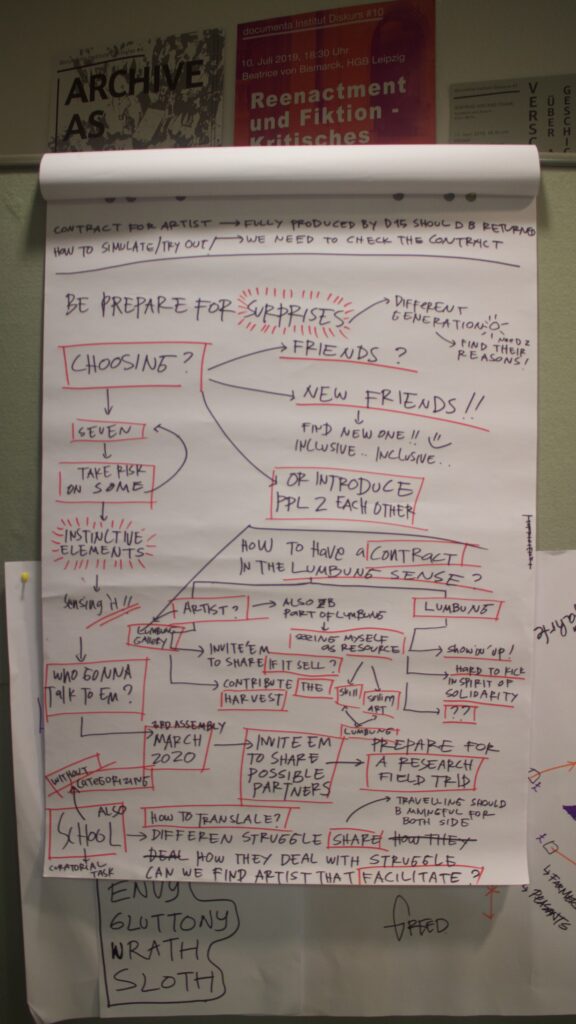 ARCHIVE
AS
documenta Institut Diskurs #10
10. Juli 2019, 18:30 Uhr
Beatrice von Bismarck, HGB Leipzig
Reenactment
und Fiktion -
Kritisches
ÜBER
CONTRACT FOR ARTIST → FULLY PRODUCED BY D15 SHOULD B RETURNED
HOW TO SIMULATE/TRY OUT! → WE NEED TO CHECK THE CONTRACT
BE PREPARE FOR SURPRISES → DIFFERENT
GENERATION
→ NEED 2
FIND THEIR
REASONS!
CHOOSING?
FRIENDS?
NEW FRIENDS!!
FIND NEW ONE!!
INCLUSIVE.. INCLUSIVE..
SEVEN
TAKE RISK
ON SOME
OR INTRODUCE
PPL 2 EACH OTHER
INSTINCTIVE
ELEMENTS
HOW TO HAVE a CONTRACT
IN THE LUMBUNG SENSE?
Sensing it!!
ARTIST?
→ ALSO B
PART OF LUMBUNG
LUMBUNG
LUMBUNG
GALLERY
SEEING MYSELF
AS RESOURCE
INVITE'EM
TO SHARE IF IT SELL?
SHOWIN' UP!
HARD TO KICK
IN SPIRIT OF
SOLIDARITY
??
CONTRIBUTE THE
HARVEST
Skill
Sellin
ART
LUMBUNG
WHO GONNA
Talk To Em?
3RD ASSEMBLY
MARCH
2020
INVITE EM
TO SHARE
POSSIBLE
PARTNERS
PREPARE FOR
A RESEARCH
FIELD TRIP
WITHOUT
CATEGORIZING
TRAVELLING SHOULD
B MNINGFUL FOR
BOTH SIDE
ALSO
SKHOOL
CURATORIAL
TASK
HOW TO TRANSLALE?
→ DIFFEREN STRUGGLE SHARE HOW THEY
DEAL HOW THEY DEAL WITH STRUGGLE
CAN WE FIND ARTIST THAT FACILITATE?
ENVY
GLUTTONY
WRATH
SLOTH
GREED
FARMER
PEASANTS